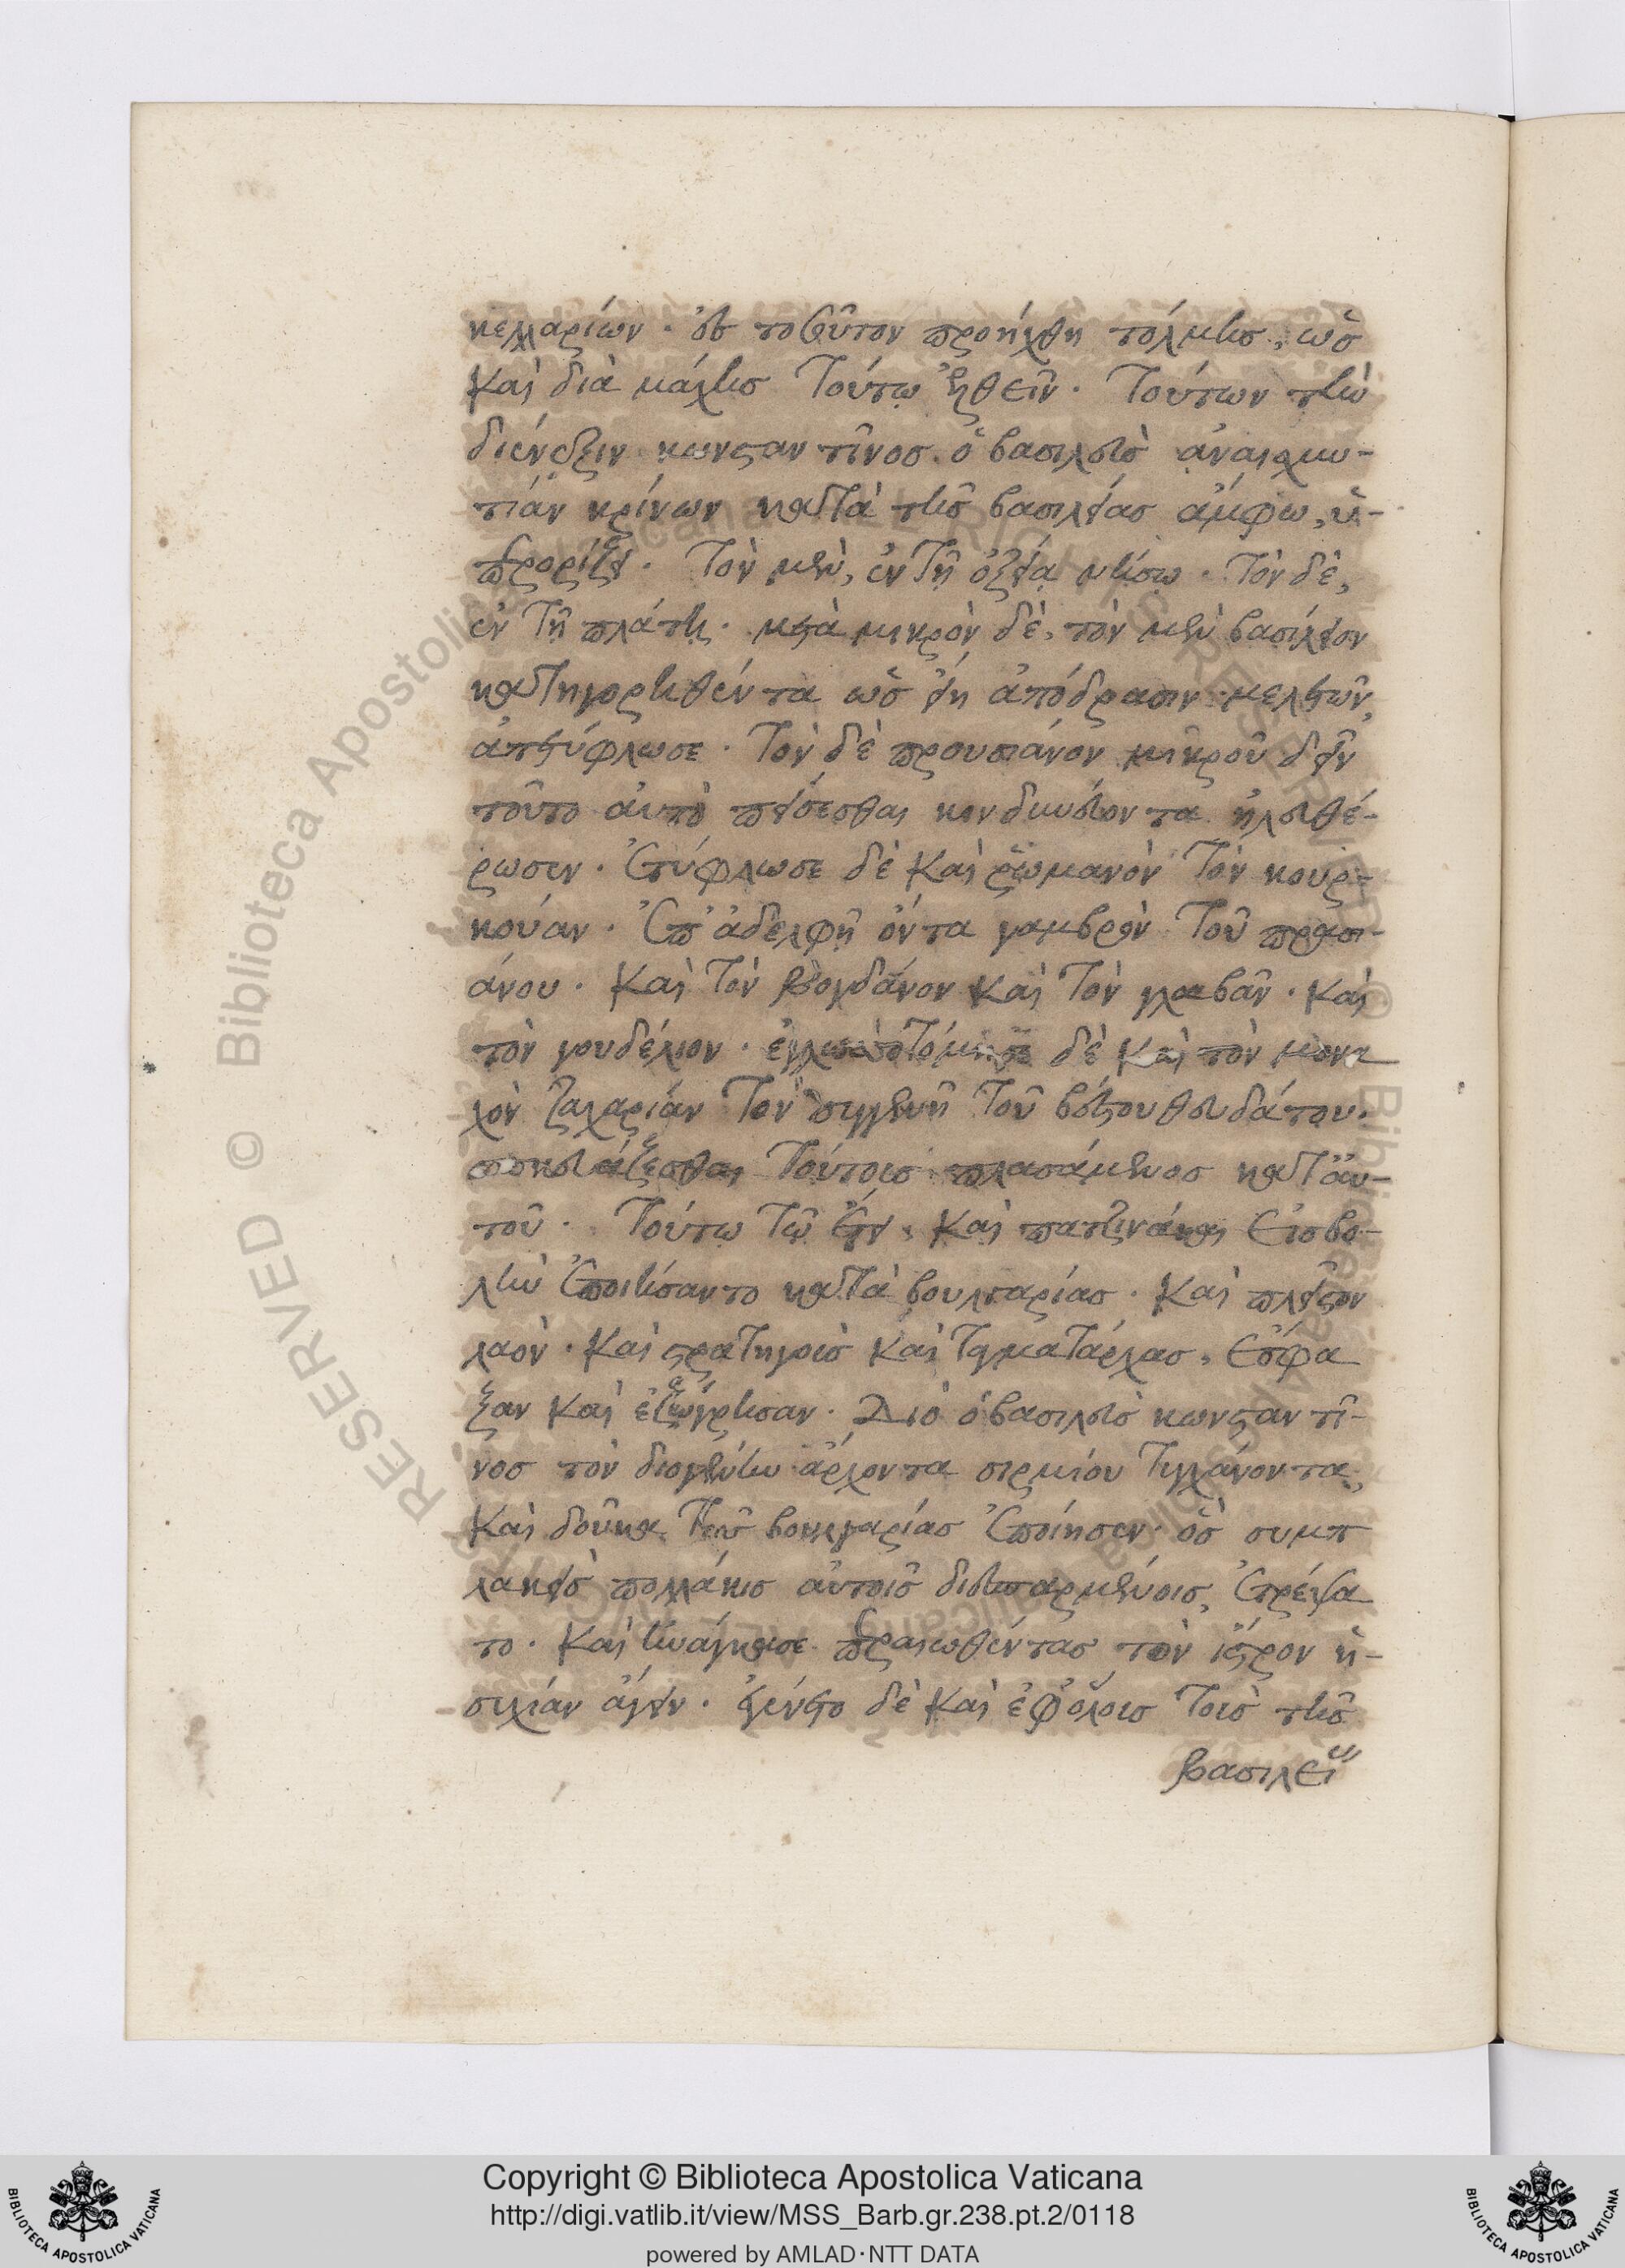 κελλαρίων. εἰς τοσοῦτον προήχθη τόλμης, ὡς
καὶ διὰ μάχης τούτῳ ἐλθεῖν. τούτων τὴν
διένεξιν κωνσταντῖνος ὁ βασιλεὺς
τίαν κρίνων κατὰ τῆς βασιλείας ἄμφω, ὑ-
περορίζει. τὸν μὲν, ἐν τῇ ὀξείᾳ νήσῳ. τὸν δὲ,
ἐν τῇ πλάτῃ. μετὰ μικρὸν δὲ, τὸν μὲν βασίλειον
κατηγορηθέντα ὡς εἴη ἀπόδρασιν μελετῶν,
ἀπετύφλωσε. τὸν δὲ προυσιάνον μικροῦ δεῖν
τοῦτο αὐτὸ πείσεσθαι κινδυνεύοντα ἠλευθέ-
ρωσεν. ἐτύφλωσε δὲ καὶ ῥωμανὸν τὸν κουρ-
κούαν. ἐπ' ἀδελφῇ ὄντα γαμβρὸν τοῦ πρασι-
άνου. καὶ τὸν βογδάνον καὶ τὸν γλαβᾶν. καὶ
τὸν γουδέλιον. ἐγλωττοτόμησε δὲ καὶ τὸν μονα
χὸν ζαχαρίαν τὸν συγγενῆ τοῦ βέστου θευδάτου.
σκευάζεσθαι τούτοις πλασάμενος κατ' αὐ-
τοῦ. τούτῳ τῷ ἔτει, καὶ πατζινάκαι εἰσβο-
λὴν ἐποιήσαντο κατὰ βουλγαρίας. καὶ πλεῖστον
λαὸν. καὶ στρατηγοὺς καὶ ταγματάρχας, ἔσφα
ξαν καὶ ἐζώγρησαν. Διὸ ὁ βασιλεὺς κωνσταντῖ-
νος τὸν διογένην ἄρχοντα σιρμίου τυγχάνοντα,
καὶ δοῦκα τῆς βουλγαρίας ἐποίησεν. ὃς συμπ
λακεὶς πολλάκις αὐτοῖς διεσπαρμένοις, ἐτρέψα
το. καὶ ἠνάγκασε περαιωθέντας τὸν ἴστρον ἡ-
συχίαν ἄγειν. ἐγένετο δὲ καὶ ἐφ' ὅλοις τοῖς τῆς
βασιλεί